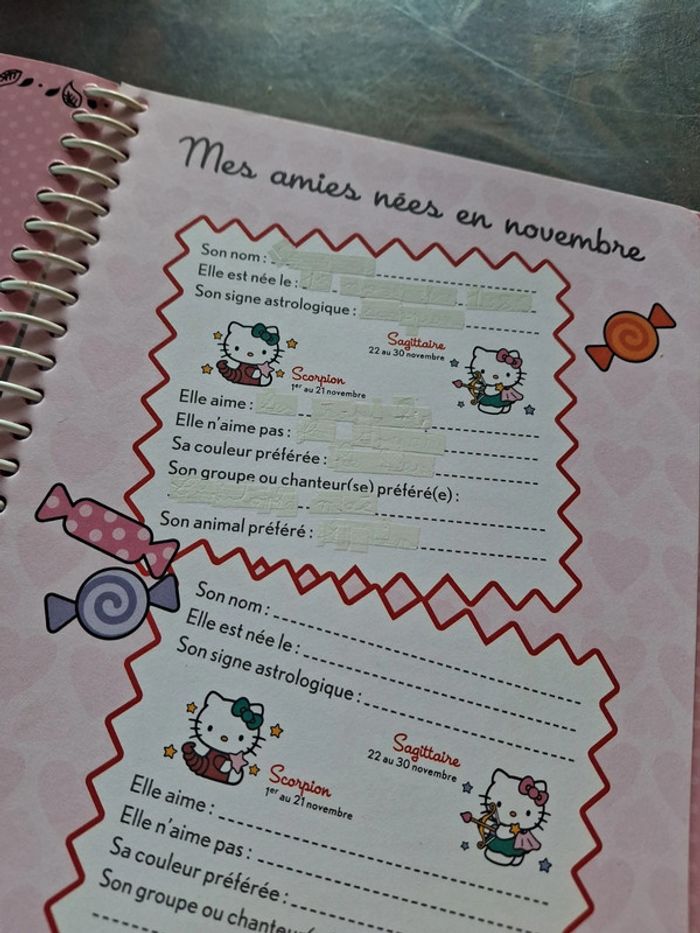 Mes amies nées en novembre
Son nom :
Elle est née le :
Son signe astrologique :
Sagittaire
22 au 30 novembre
Scorpion
1er au 21 novembre
Elle aime :
Elle n'aime pas :
Sa couleur préférée :
Son groupe ou chanteur(se) préféré(e) :
Son animal préféré :
Son nom :
Elle est née le :
Son signe astrologique :
Sagittaire
22 au 30 novembre
Scorpion
1er au 21 novembre
Elle aime :
Elle n'aime pas :
Sa couleur préférée :
Son groupe ou